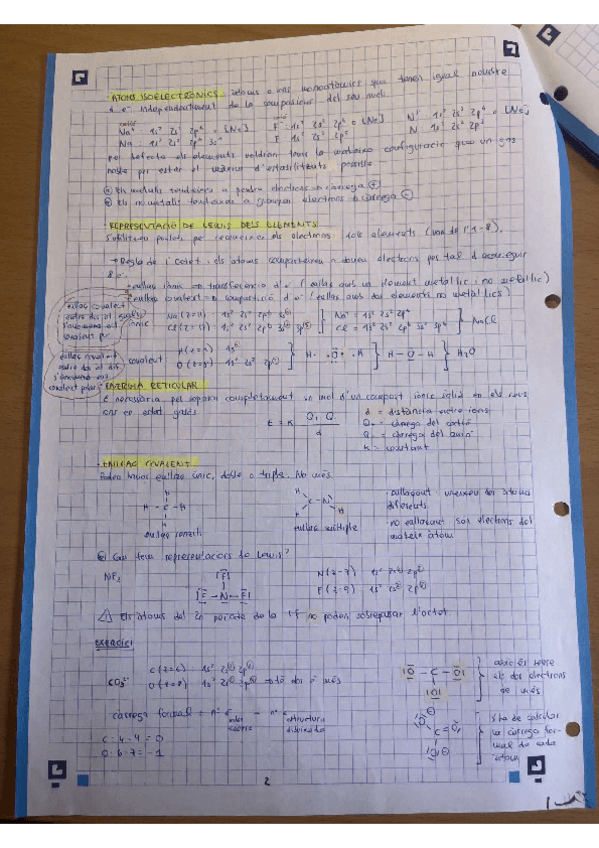 ÀTOMS ISOELECTRÒNICS: àtoms o ions monoatòmics que tenen igual nombre
d'e⁻ independentment de la composició del seu nucli.
Na⁺ 1s² 2s² 2p⁶ = [Ne]
F⁻ 1s² 2s² 2p⁶ = [Ne]
1s² 2s² 2p⁶ = [Ne]
Na 1s² 2s² 2p⁶ 3s¹
F 1s² 2s² 2p⁵
N 1s² 2s² 2p³
per defecte els elements voldran tenir la mateixa configuració que un gas
noble per estar el màxim d'estabilitzats possible
Els metalls tendeixen a perdre electrons → càrrega ⊕
Els no metalls tendeixen a guanyar electrons → càrrega ⊖
REPRESENTACIÓ DE LEWIS DELS ELEMENTS
els electrons dels elements (van de l'1-8).
→ Regla de l'octet: els àtoms comparteixen o donen electrons per tal d'aconseguir
8 e⁻
enllaç iònic ⇒ transferència d'e⁻ (enllaç amb un element metàl·lic i no metàl·lic)
enllaç covalent ⇒ compartició d'e⁻ (enllaç amb dos elements no metàl·lics)
enllaç covalent
iònic
Na (z=11) 1s² 2s² 2p⁶ 3s¹
Na⁺ = 1s² 2s² 2p⁶
Cl (z=17) 1s² 2s² 2p⁶ 3s² 3p⁵
Cl⁻ = 1s² 2s² 2p⁶ 3s² 3p⁶
NaCl
covalent
H (z=1) 1s¹
O (z=8) 1s² 2s² 2p⁴
H · O · H
H - O - H
H₂O
ENERGIA RETICULAR
És necessària per separar completament un mol d'un compost iònic sòlid en els seus
ions en estat gasós
E = K Q₁ Q₂ / d
d = distància entre ions
Q₁ = càrrega del catió
Q₂ = càrrega del anió
K = constant
ENLLAÇ COVALENT
Poden haver enllaç únic, doble o triple. No més
H
H - C - H
H
enllaç senzill
H
C = N
H
enllaç múltiple
· enllaçant: uneixen els àtoms
diferents
· no enllaçant: són electrons del
mateix àtom
Com fem representacions de Lewis?
NF₃
|F|
|F - N - F|
N (z=7) 1s² 2s² 2p³
F (z=9) 1s² 2s² 2p⁵
Els àtoms del 2n període de la TP no poden sobrepassar l'octet
EXERCICI
CO₃²⁻
C (z=6): 1s² 2s² 2p²
O (z=8): 1s² 2s² 2p⁴ ⇒ té dos e⁻ més
|O - C - O|
|O|
els dos electrons
de més
càrrega formal = nº e⁻ - nº e⁻ estructura dibuixada
C: 4 - 4 = 0
O: 6 - 7 = -1
C = O
s'ha de calcular
la càrrega for-
mal de cada
àtom
2